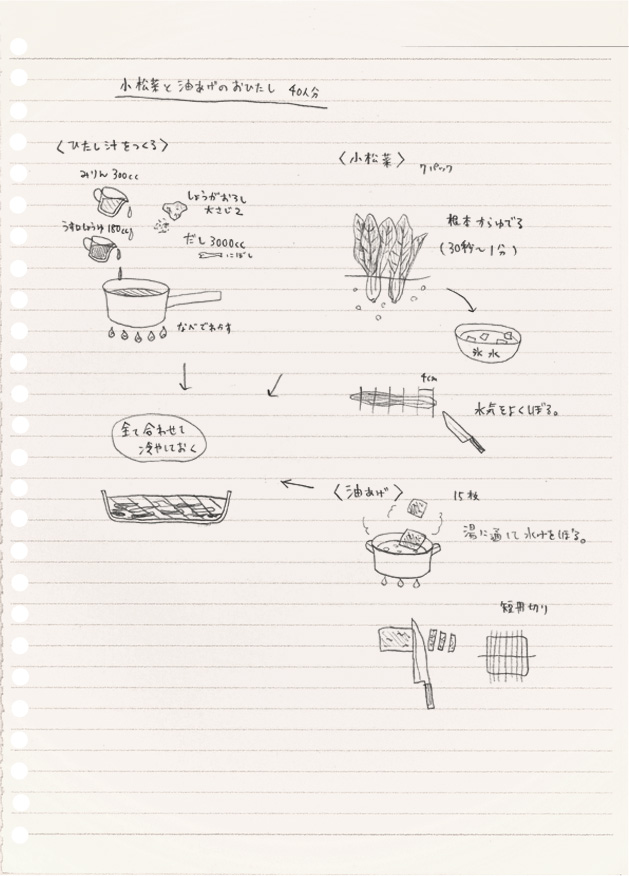 小松菜と油あげのおひたし 40人分
〈ひたし汁をつくる〉
みりん 300cc
しょうがおろし
大さじ2
うす口しょうゆ 180cc
だし 3000cc
にぼし
なべでわかす
全て合わせて
冷やしておく
〈小松菜〉 7パック
根本からゆでる
(30秒〜1分)
氷水
4cm
水気をよくしぼる。
〈油あげ〉 15枚
湯に通して水けをしぼる。
短冊切り